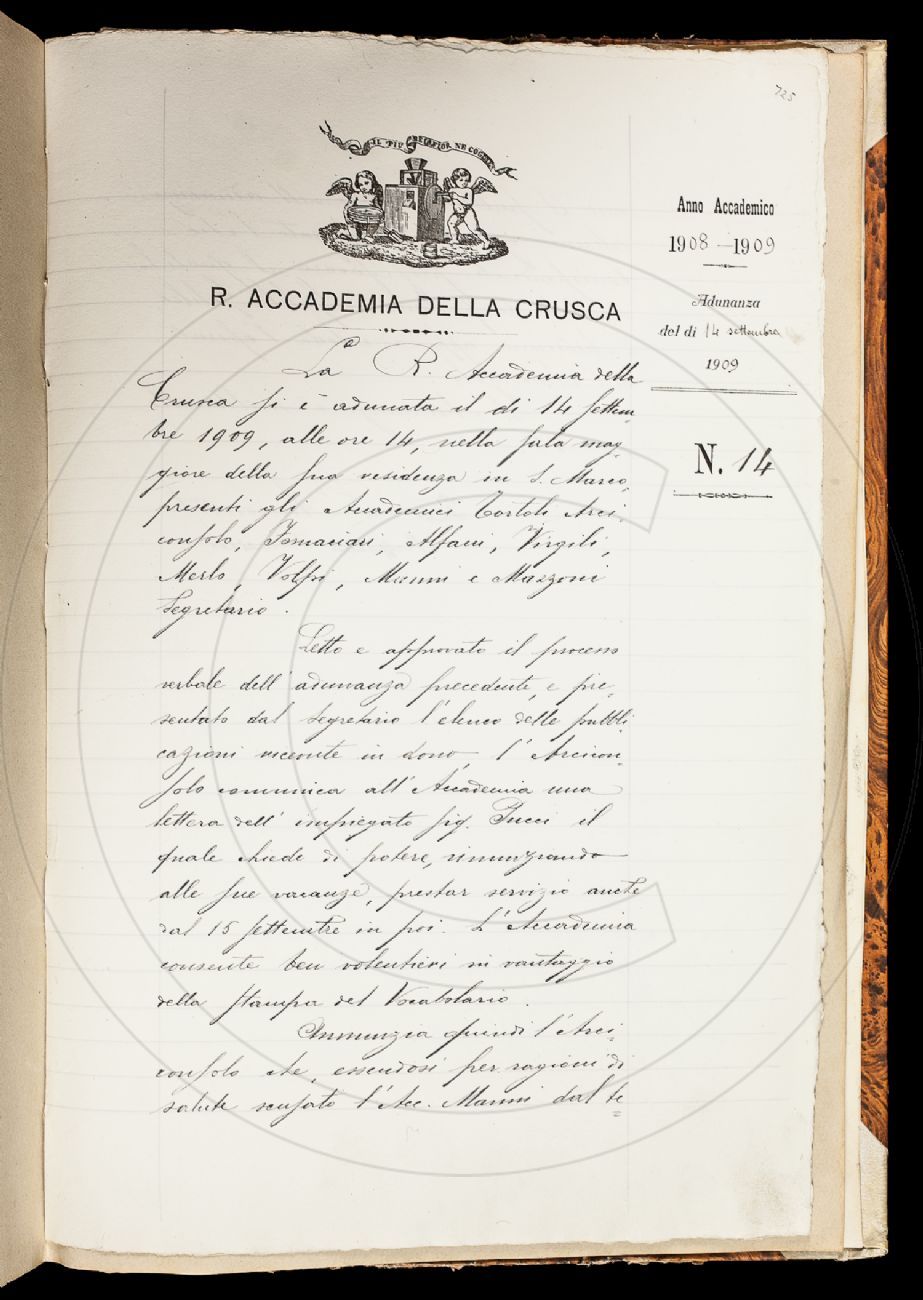 725
IL PIÙ BEL FIOR NE COGLIE
Anno Accademico
1908-1909
Adunanza
del dì 14 settembre
1909
N. 14
R. ACCADEMIA DELLA CRUSCA
La R. Accademia della
Crusca si è adunata il dì 14 settem
bre 1909, alle ore 14, nella sala mag-
giore della sua residenza in S. Marco,
presenti gli Accademici Tortoli Arci-
consolo, Fornaciari, Alfani, Virgili,
Merlo, Volpi, Manni e Mazzoni
Segretario.
Letto e approvato il processo
verbale dell'adunanza precedente, e pre-
sentato dal Segretario l'elenco delle pubbli-
cazioni ricevute in dono, l'Arcicon-
solo comunica all'Accademia una
lettera dell'impiegato sig. Pucci il
quale chiede di potere, rinunziando
alle sue vacanze, prestar servizio anche
dal 15 settembre in poi. L'Accademia
consente ben volentieri in vantaggio
della stampa del Vocabolario.
Annunzia quindi l'Arci-
consolo che, essendosi per ragioni di
salute scusato l'Acc. Manni dal te=